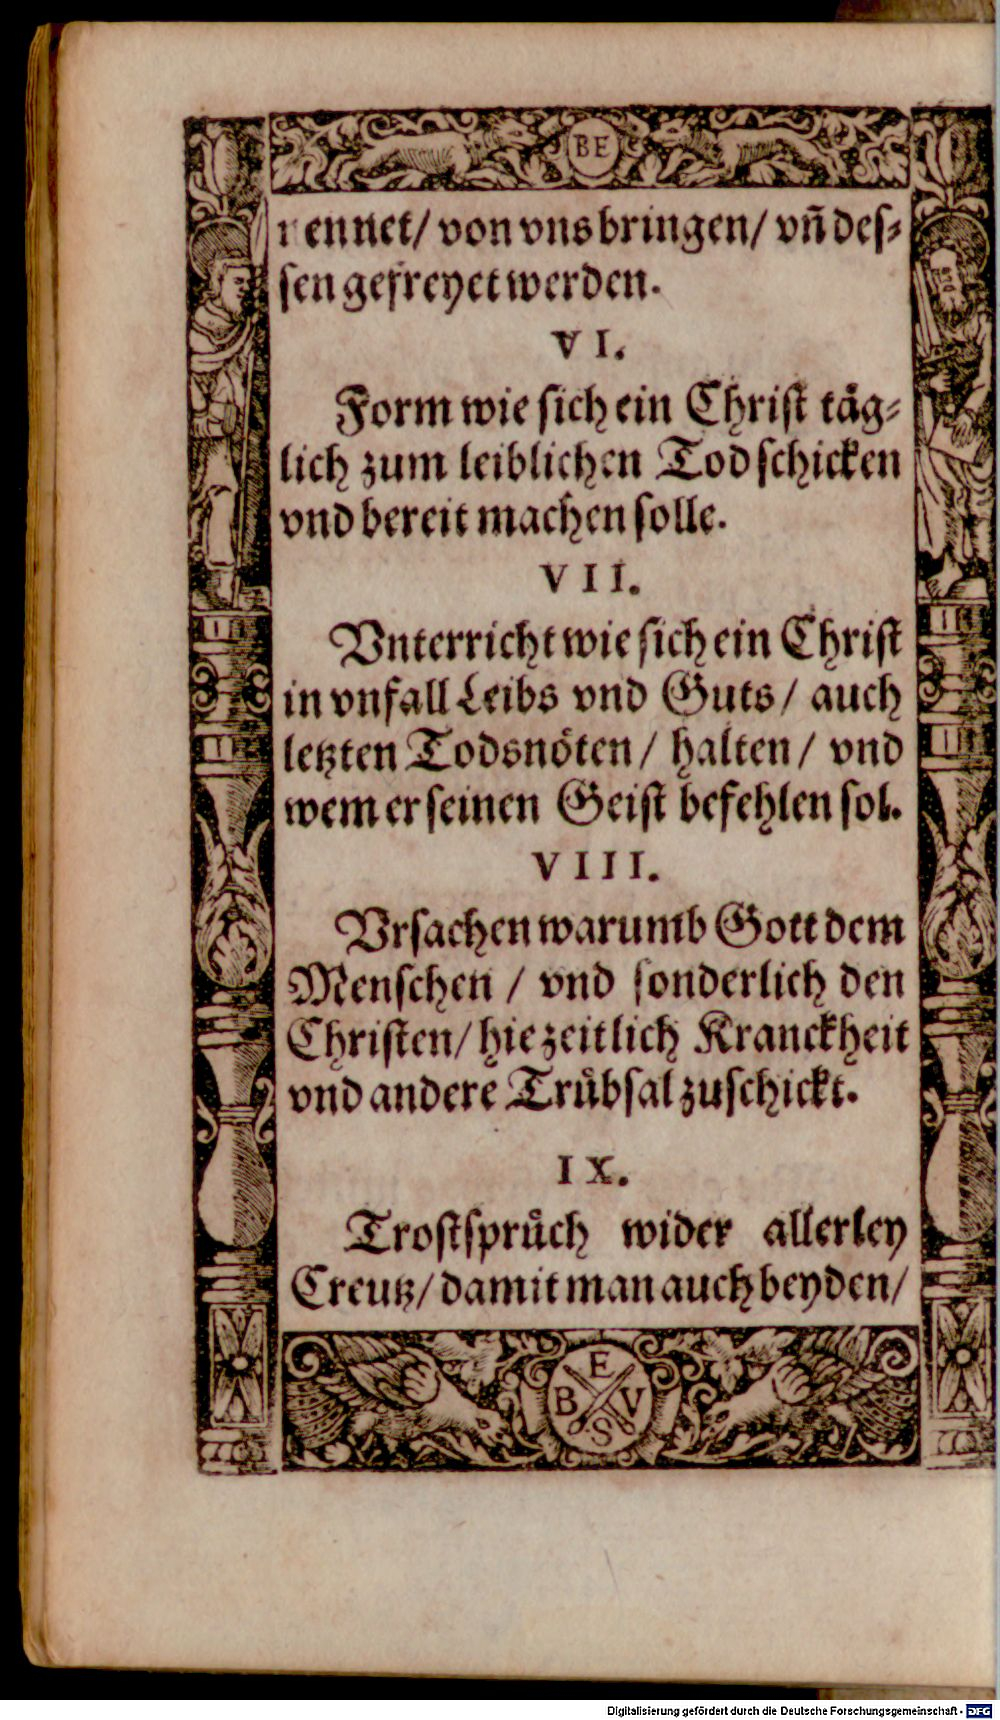 BE
nennet/ von vns bringen/ vn̄ des⸗
sen gefreyet werden.
VI.
Form wie sich ein Christ taͤg⸗
lich zum leiblichen Tod schicken
vnd bereit machen solle.
VII.
Vnterricht wie sich ein Christ
in vnfall Leibs vnd Guts/ auch
letzten Todsnoͤten/ halten/ vnd
wem er seinen Geist befehlen sol.
VIII.
Vrsachen warumb Gott dem
Menschen / vnd sonderlich den
Christen/ hie zeitlich Kranckheit
vnd andere Truͤbsal zuschickt.
IX.
Trostspruͤch wider allerley
Creutz/ damit man auch beyden/
E
B V
S
Digitalisierung gefördert durch die Deutsche Forschungsgemeinschaft - DFG